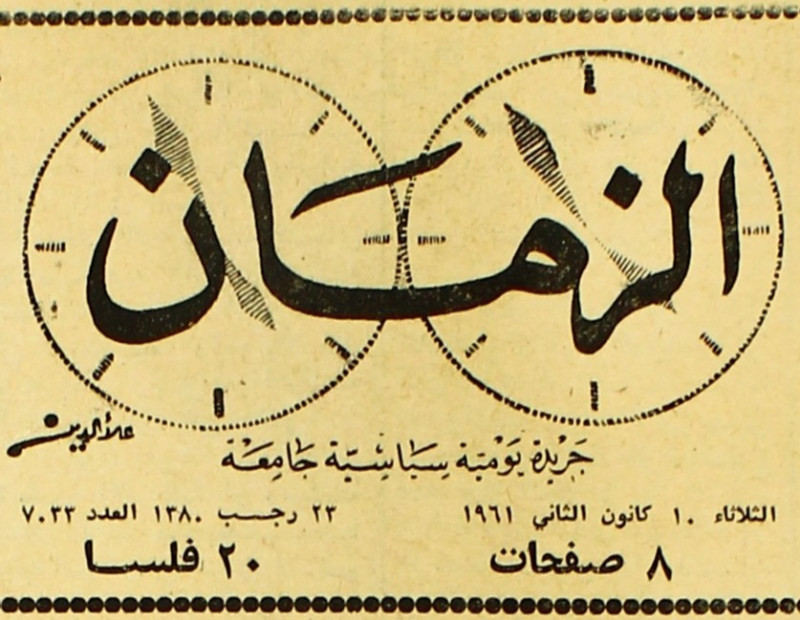 الزمان
علاء الدين
جَريْدة يَوميّة سيَاسِيّة جَامِعَة
الثلاثاء ١٠ كانون الثاني ١٩٦١
٢٣ رجب ١٣٨٠ العدد ٧٠٣٣
٨ صفحات
٢٠ فلسا